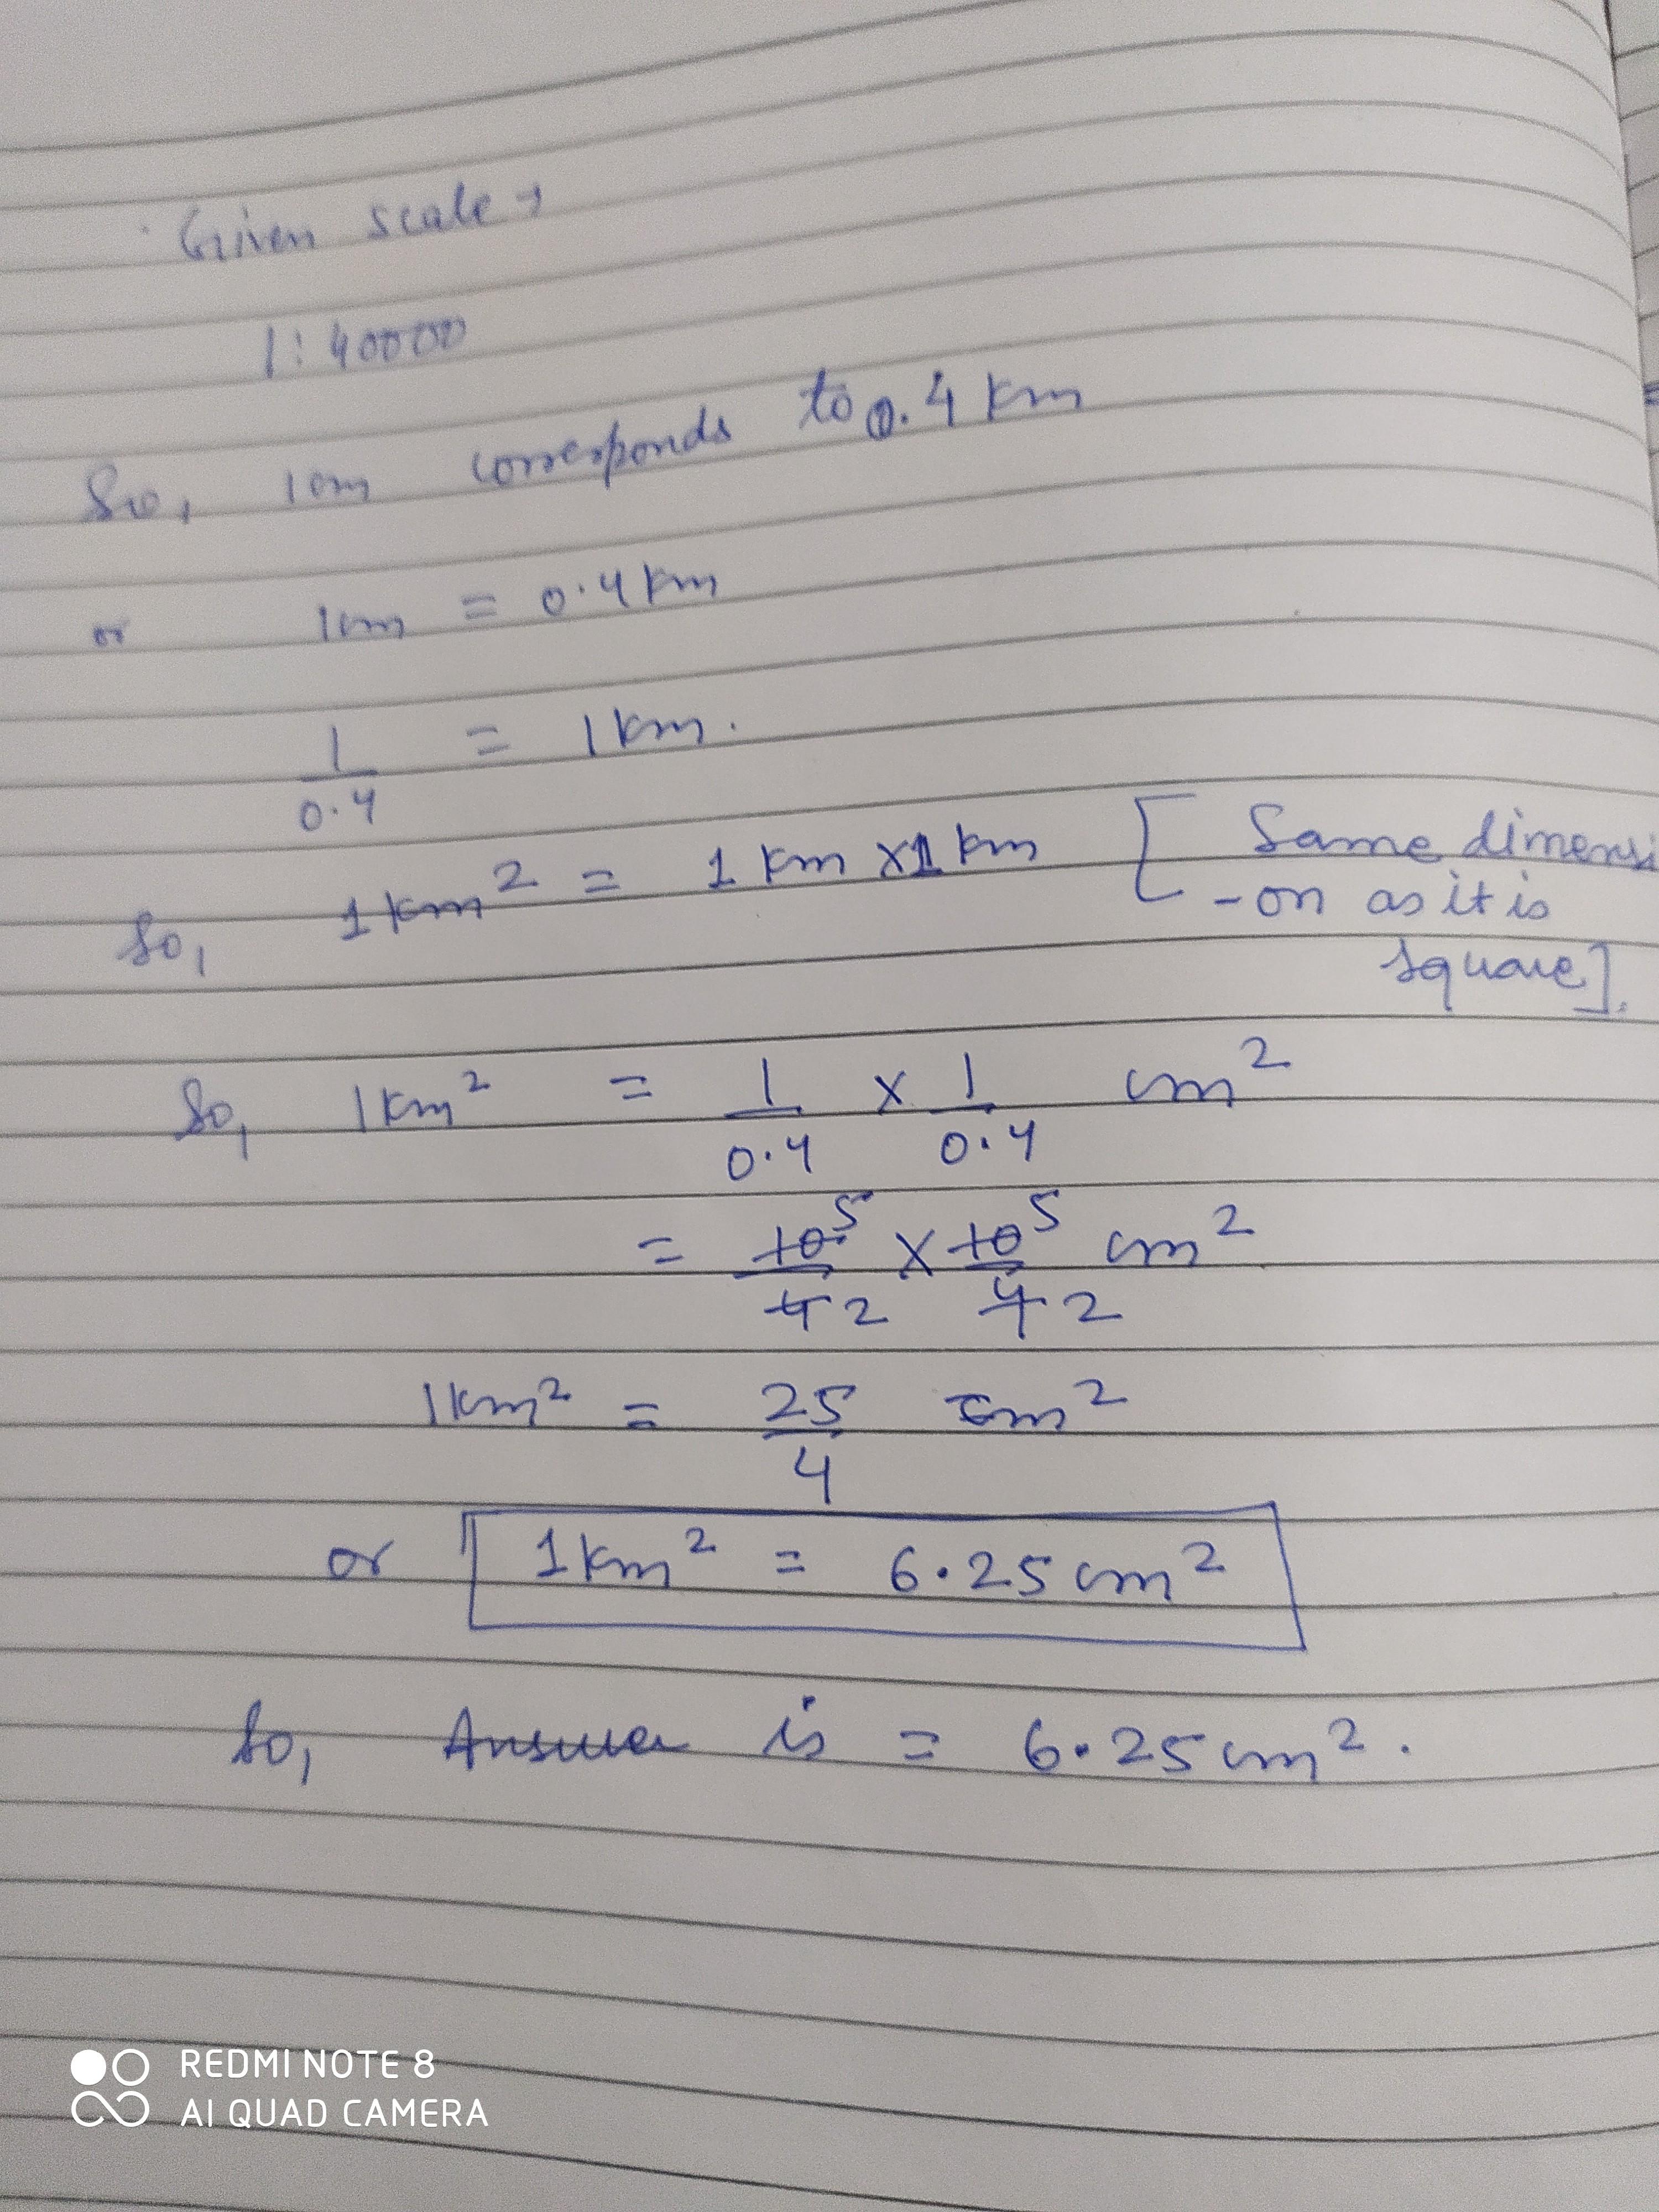 Given scale →
1:40000
So, 1cm corresponds to 0.4 km
or 1cm = 0.4 km
1/0.4 = 1 km.
So, 1 km² = 1 km × 1 km [Same dimensi
-on as it is
square].
So, 1 km² = 1/0.4 × 1/0.4 cm²
= 10 5/4 2 × 10 5/4 2 cm²
1 km² = 25/4 cm²
or 1 km² = 6.25 cm²
So, Answer is = 6.25 cm².
REDMI NOTE 8
AI QUAD CAMERA